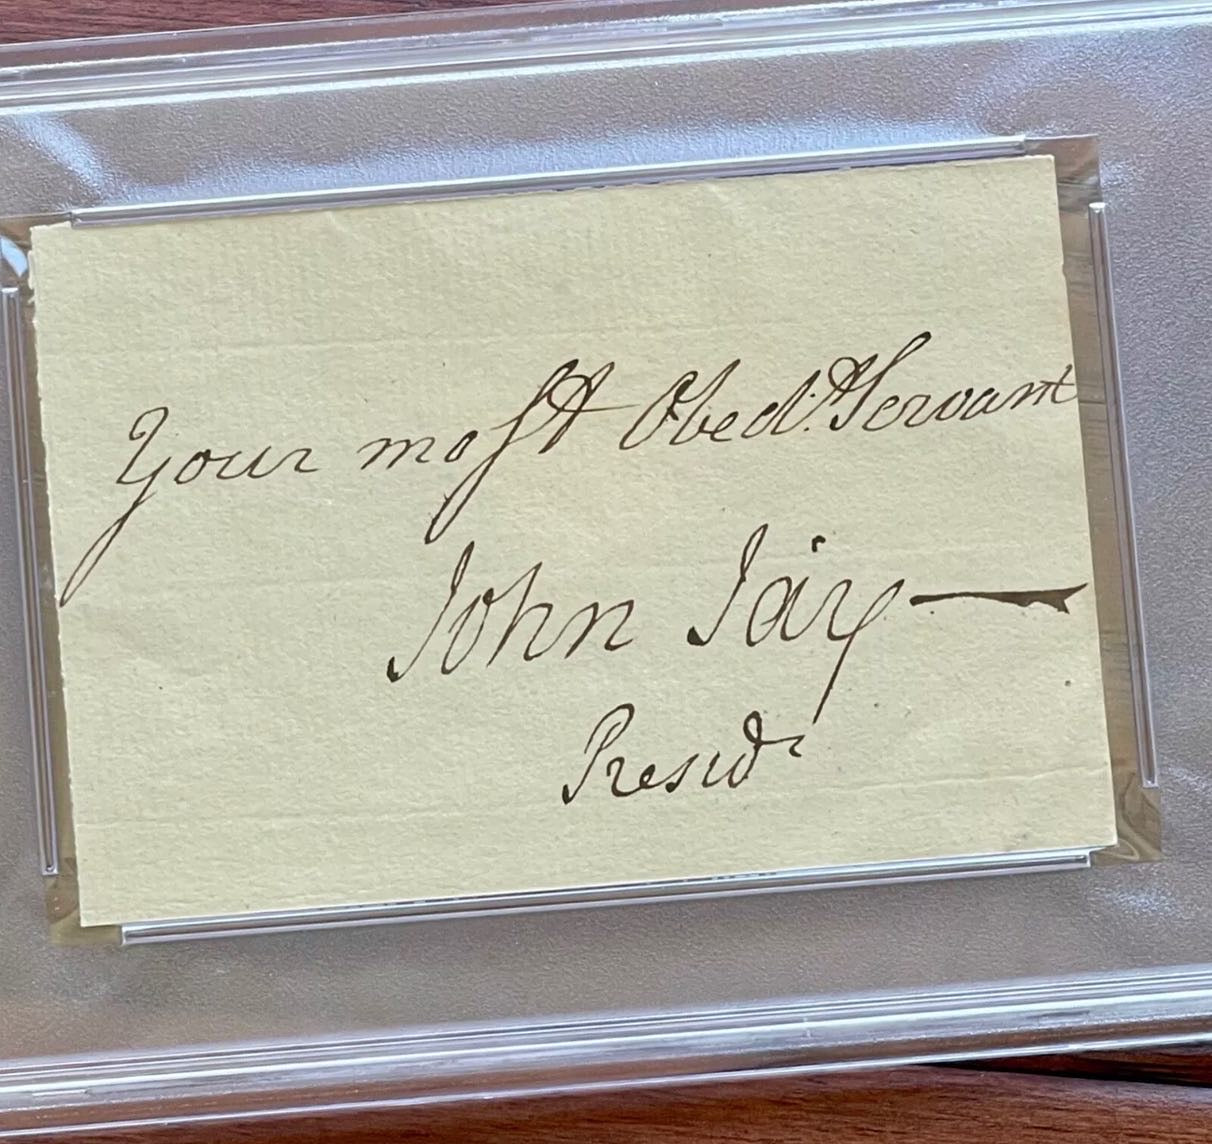 Your moſt Obedt. Servant
John Jay
Presidt